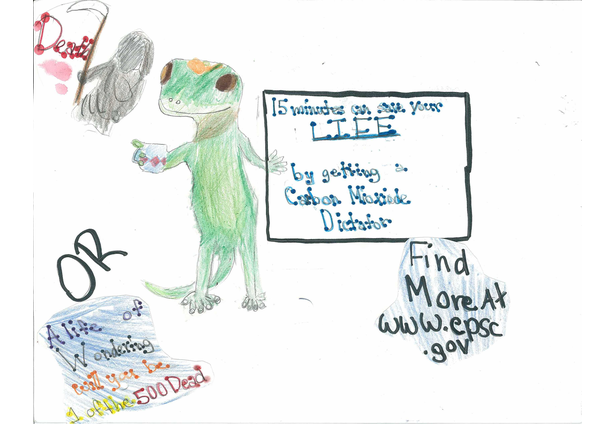 Death
15 minutes can save your
LIFE
by getting a
Carbon Mioxiode
Dictator
OR
A life of
Wondering
will you be
1 of the 500 Dead
Find
More At
www.cpsc
.gov